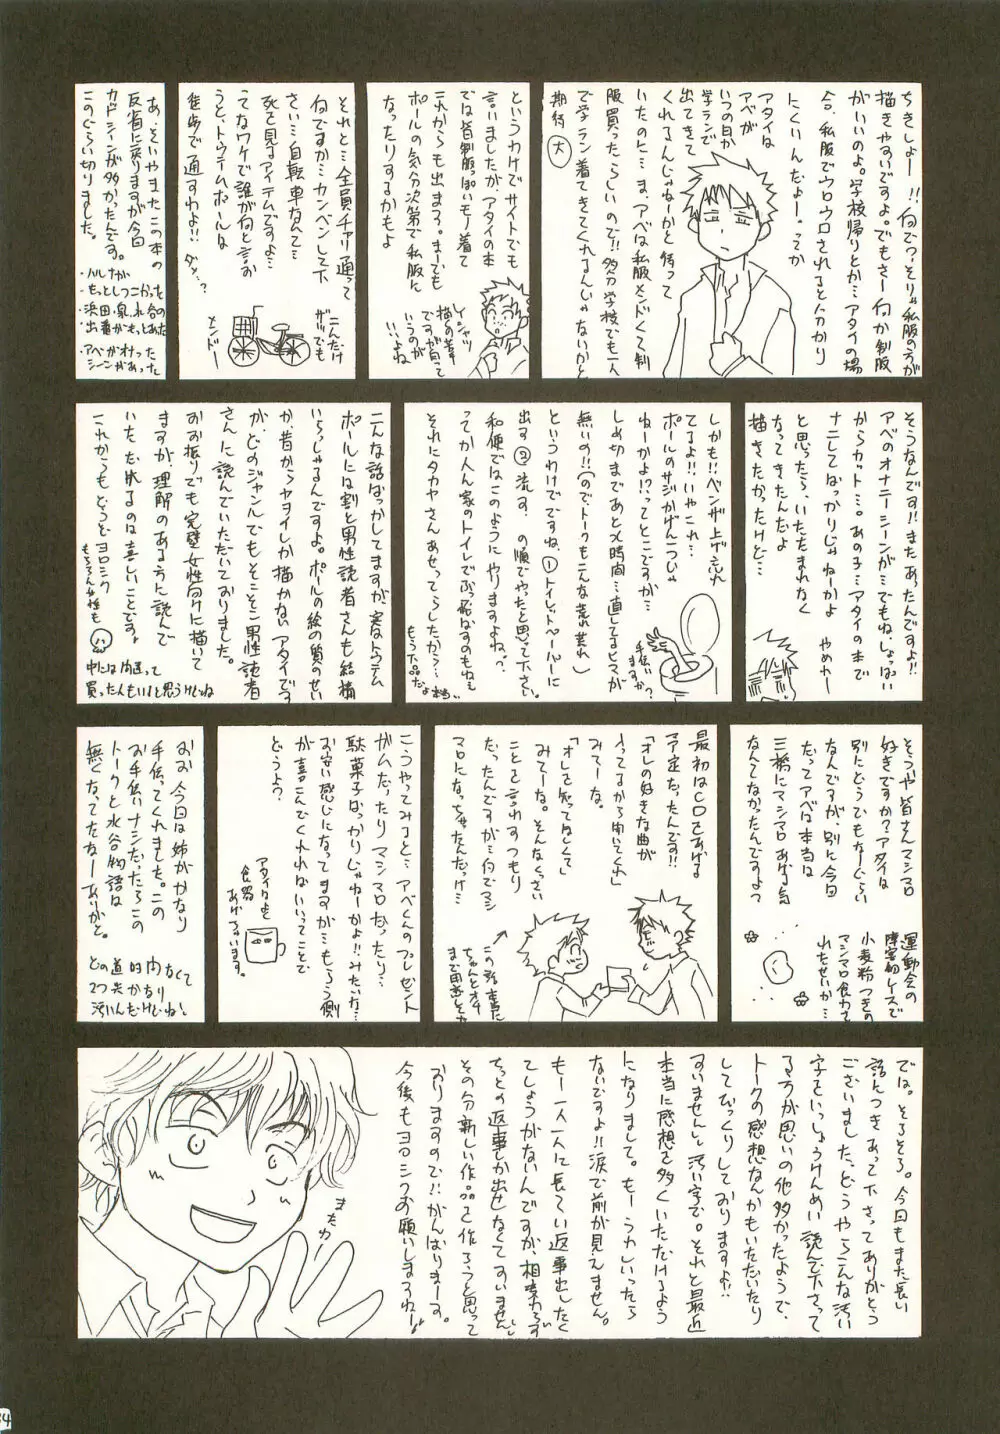 ちきしょー!!何で?そりゃ私服の方が
描きやすいですよ。でもさー何か制服
がいいのよ。学校帰りとか…アタイの場
合、私服でウロウロされると分かり
にくいんだよー。ってか
アタイは
アベが
いつの日か
学ランで
出てきて
くれるんじゃねーかと待って
いたのに…ま、アベは私服メンドくて制
服買ったらしいので!!多分学校でも一人
で学ラン着てきてくれるんじゃないかと
期待 大
というわけでサイトでも
言いましたがアタイの本
では皆制服っぽいモノ着て
これからも出ます。まーでも
ポールの気分次第で私服に
なったりするかもよ
Yシャツ
描くの業
ですが何って
いうのが
!!よね
それと…全員チャリ通って
何ですか…カンベンして下
さい…自転車なんて…
死を見るアイテムですよ…
ってなワケで誰が何と言お
うと、トウテムポールは
徒歩で通すわよ!!ダメ…?
二人だけ
ザツでも
メンドー
あ、そういやまたこの本の
反省に戻りますが今回
カドシーンが多かったんです。
このぐらい切りました。
・ハルナが
もっとしつこかった
・浜田・泉・水谷の
出番がもっとあった
・アベがオナった
シーンがあった
そうなんです!!またあったんですよ!!
アベのオナニーシーンが…でもね、しょっぱい
からカット…。あの子…アタイの本で
ナニしてばっかりじゃねーかよ
と思ったら、いたたまれなく
なってきたんだよ
描きたかったけど…
やめれー
しかも!!ベンザ上げ忘れ
てるよ!!いやこれ…
ポールのサジかげん一ついじゃ
ねーかよ!?ってところですが…
しめ切りまであと4時間…直してるヒマが
無いの!!(ので、トークもこんな荒れ荒れ)
というわけですね、①トイレットペーパーに
出す②流す、の順でやったと思って下さい。
和便ではこのようにやりますよね?
ってか人ん家のトイレでぶっ放なすのもねぇ
それにタカヤさんあせってらしたから…
もう下品だよ本当
手伝い
ますか?
こんな話ばっかしてますが、実はトウテム
ポールには割と男性読者さんも結構
いらっしゃるんですよ。ポールの絵の質のせい
か、昔からヤヨイしか描かないアタイです
が、どのジャンルでもそこそこ男性読者
さんに読んでいただいておりました。
おお振りでも完璧女性向けに描いて
ますが、理解のある方に読んで
いただけるのは喜しいことです。
これからもどうぞヨロシク
もちろん女性も
中には間違って
買った人もいると思うけどね
そういや皆さんマシマロ
好きですか?アタイは
別にどうでもなーぐらい
なんですが、別に今回
だってアベは本当は
三橋にマシマロあげる気
なんてなかったんですよっ
運動会の
障害物レースで
小麦粉つきの
マシマロ食わて
れたせいか…
最初はCDをあげる
予定だったんです!!
「オレの好きな曲が
入ってるから聞いてくれ」
みてーな。
「オレを知ってほしくて」
みてーな。そんなくっさい
ことを言わすつもり
だったんですが…何でマシ
マロになっちゃたんだっけ…
この話本当に
ちゃんとオチ
まで用意してた
こうやってみると…アベくんのプレゼント
ガムだったりマシマロだったり…
駄菓子ばっかりじゃねーかよ!!みたいな…
お安い感じになってますが…もらう側
が喜こんでくれればいいってことで
どうよ?
アタイなど
食器
あげちゃいます。
おお、今回は姉がかなり
手伝ってくれました。この
お手伝いナシだったらこの
トークと水谷物語は
無くなってたなーありがと。
どの道時間なくて
2つ共かなり
汚いんだけどね
では。そろそろ。今回もまた長い
話につきあって下さってありがとう
ございました。どうやらこんな汚い
字をいっしょうけんめい読んで下さって
る方が思いの他多かったようで、
トークの感想なんかもいただいたり
してびっくりしておりますよ!!
すいません。汚い字で。それと最近
本当に感想を多くいただけるよう
になりまして。もーうれしいったら
ないですよ!!涙で前が見えません。
もー一人一人に長てい返事出したく
てしょうがないんですが、相変わらず
ちょっとの返事しか出せなくてすいません。
その分新しい作品を作ろうと思って
おりますので!!がんばりまーす。
今後もヨロシクお願いしまーす!!
またねー
34